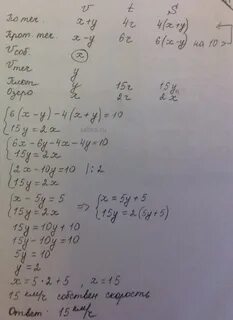 V t S
По теч. x+y 4ч 4(x+y)
Прот теч. x-y 6ч 6(x-y) на 10>
Vсоб. x
Vтеч y
Плот y 15ч 15y
Озеро x 2ч 2x
{6(x-y)-4(x+y)=10
{15y=2x
{6x-6y-4x-4y=10
{15y=2x
{2x-10y=10 |:2
{15y=2x
{x-5y=5 => {x=5y+5
{15y=2x {15y=2(5y+5)
15y=10y+10
15y-10y=10
5y=10
y=2
x=5·2+5, x=15
15 км/ч собствен скорость
Ответ: 15 км/ч